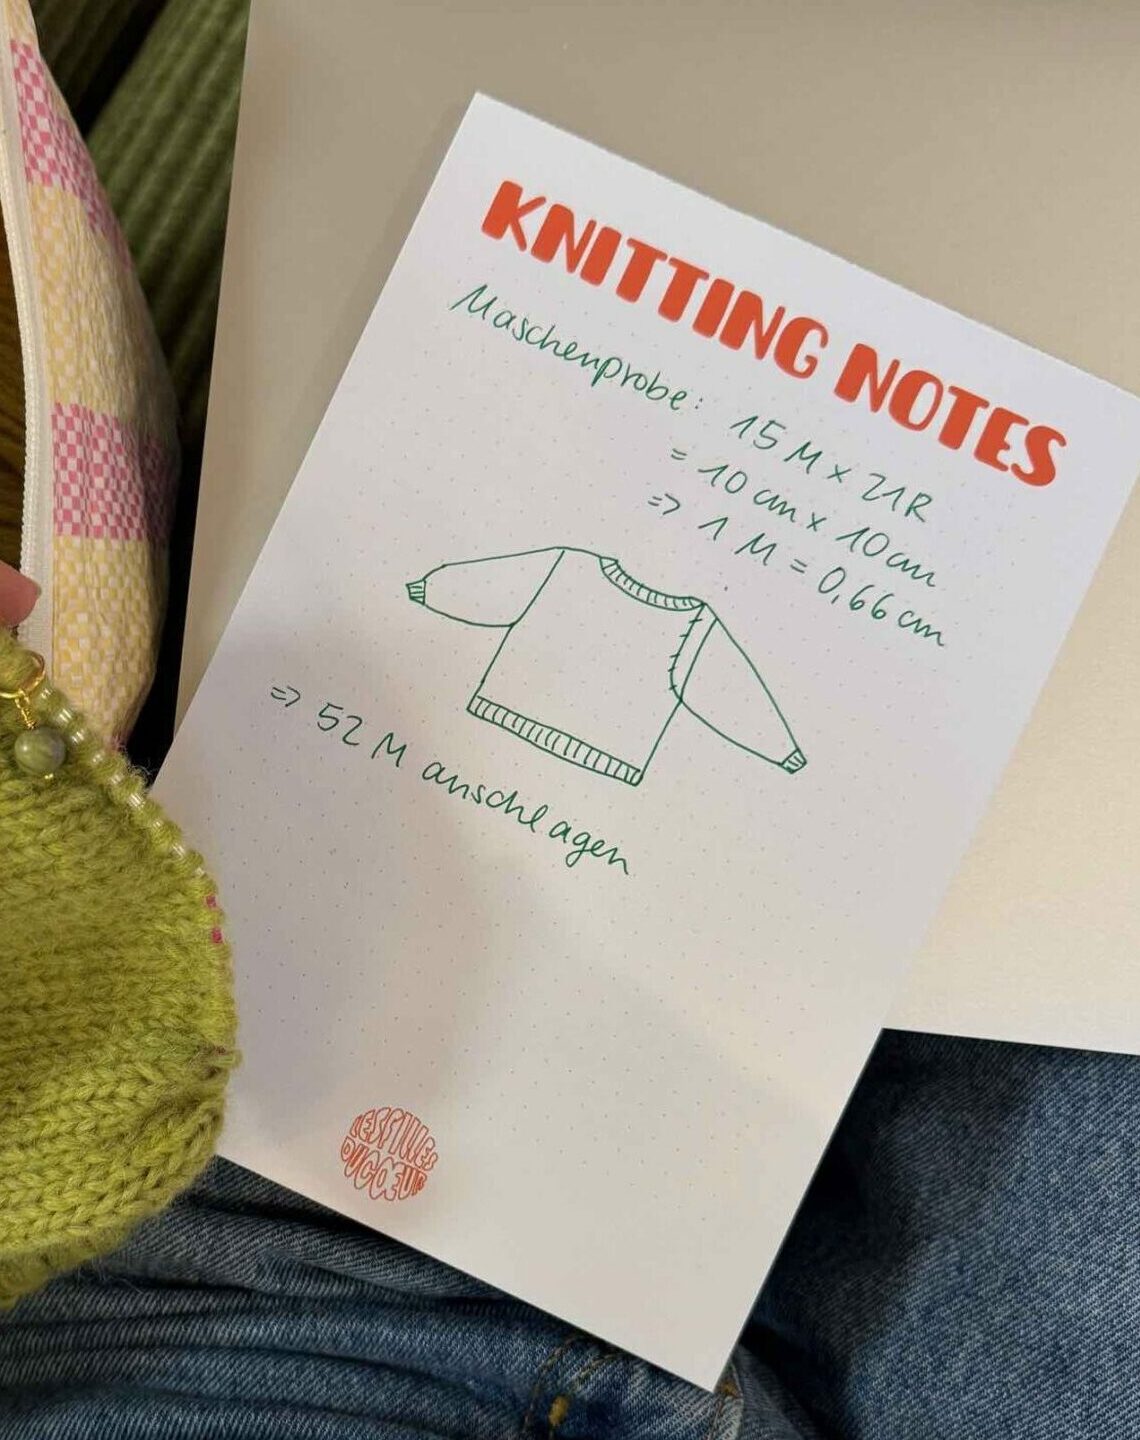 KNITTING NOTES
Maschenprobe: 15 M x 21R
= 10 cm x 10 cm
=> 1 M = 0,66 cm
=> 52 M anschlagen
LES FILLES
DU CŒUR